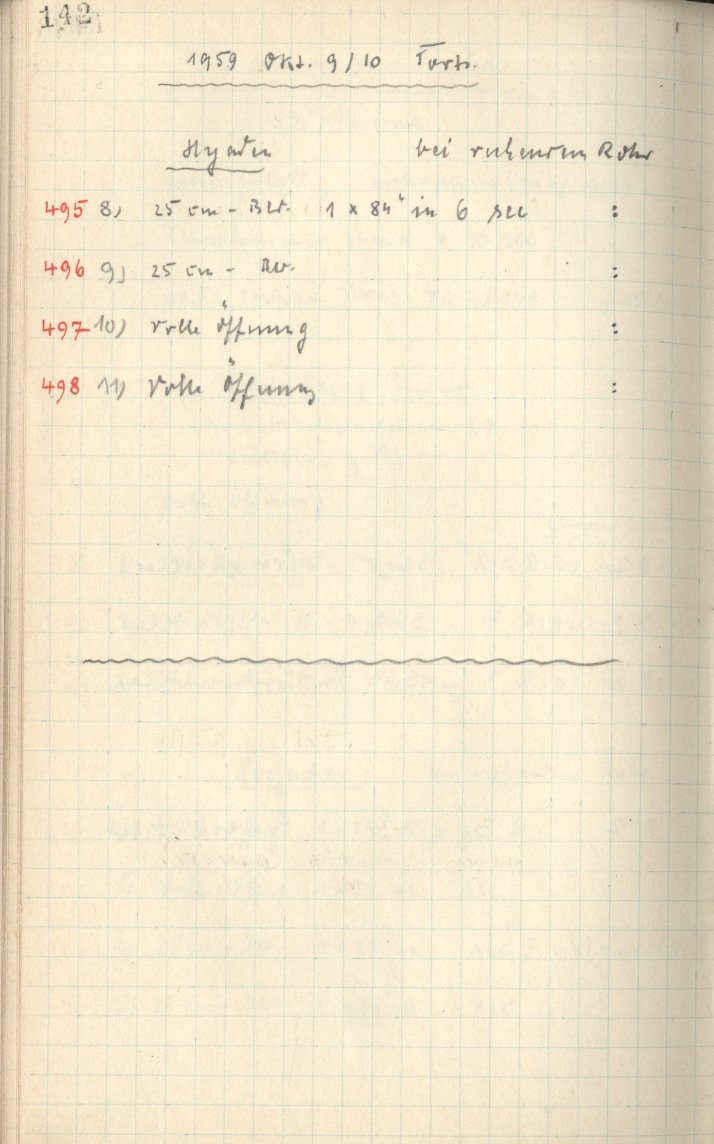 142
1959 Okt. 9/10 Forts.
Hyaden bei ruhendem Rohr
495 8) 25 cm - Bld. 1 x 84" in 6 sec :
496 9) 25 cm - Bld. :
497 10) volle Öffnung :
498 11) Volle Öffnung :